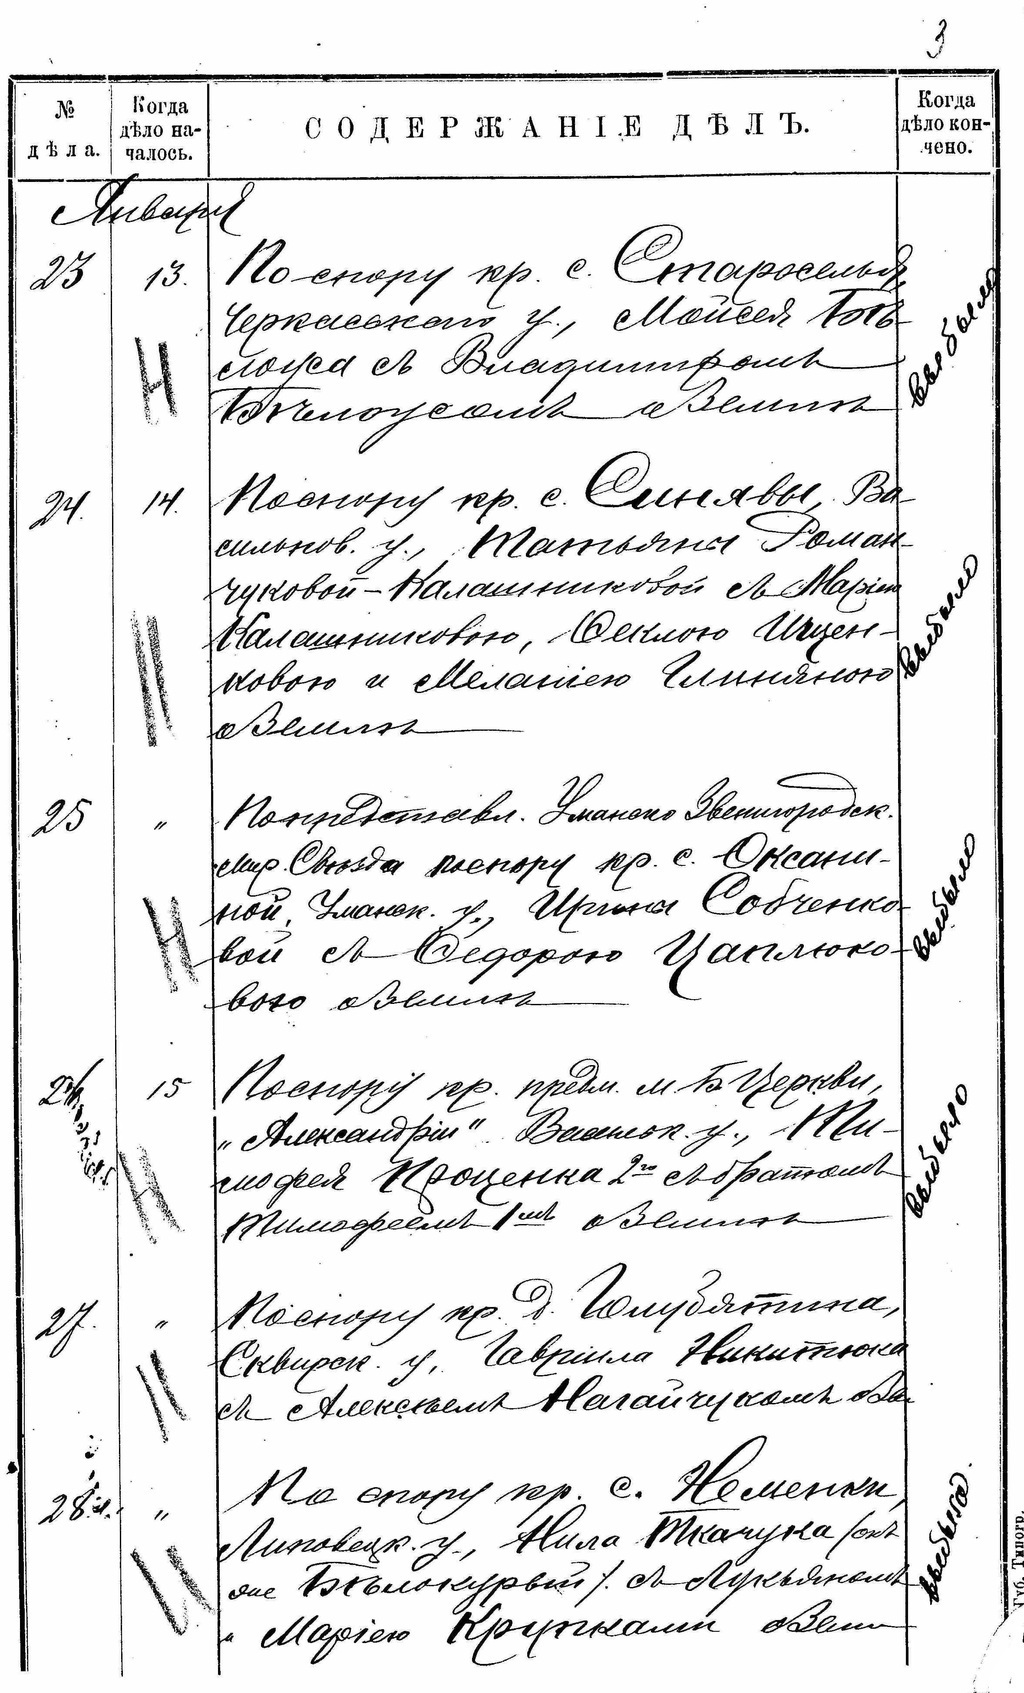 3
№ дѣла.
Когда дѣло началось.
СОДЕРЖАНІЕ ДѢЛЪ.
Когда дѣло кончено.
Января
23 13. По спору кр. с. Староселья,
Черкасскаго у., Мойсея Бѣ-
лоуса съ Владиміромъ
Бѣлоусомъ о землѣ
выбыло
24. 14. По спору кр. с. Синявы, Ва-
сильков. у., Татьяны Роман-
чуковой-Калашниковой съ Маріею
Калашниковою, Ѳеклою Ищен-
ковою и Меланіею Глиняною
о землѣ
выбыло
25 " По представл. Уманско Звенигородск.
Мир. Съѣзда по спору кр. с. Оксани-
ной, Уманск. у., Ирины Собченко-
вой съ Ѳедорою Цаплюко-
вою о землѣ
выбыло
15 По спору кр. предм. м. Б Церкви,
"Александріи" Васильк. у., Ти-
мофея Проценка 2го съ братомъ
Тимофеемъ 1мъ о землѣ
выбыло
27. " По спору кр. д. Голубятина,
Сквирск. у., Гавріила Никитюка
съ Алексѣемъ Нагайчукомъ о
28. " По спору кр. с. Неменки,
Липовецк. у., Нила Ткачука (онъ
же Бѣлокурый). съ Лукьяномъ
и Маріею Крупками о земл
выбыло
Губ. Типогр.